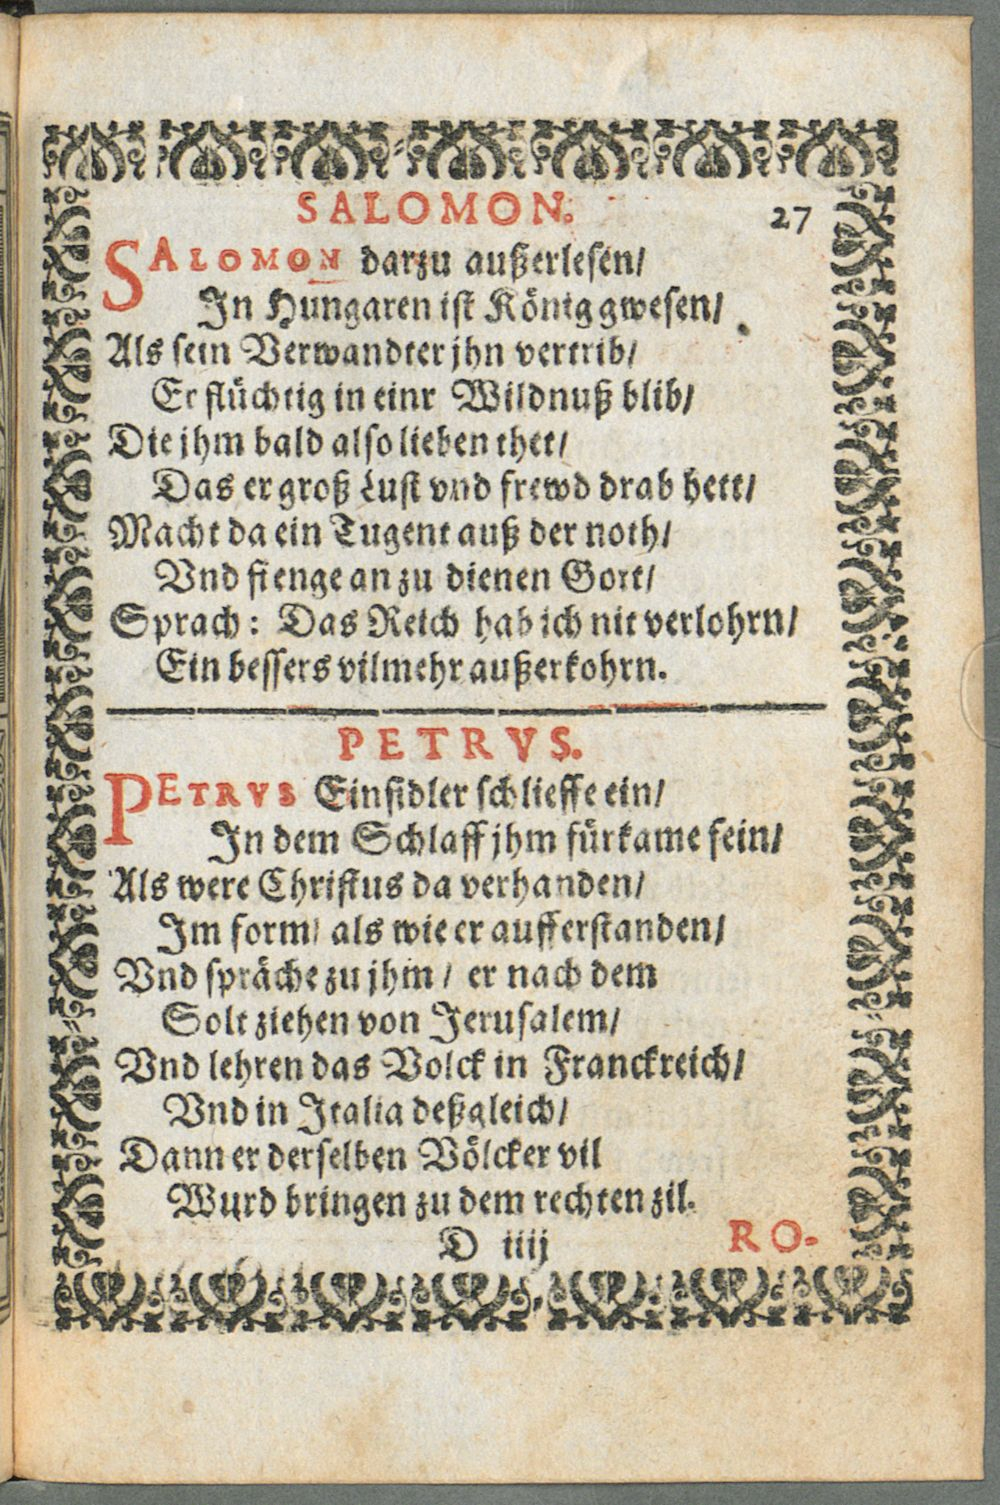 SALOMON.
27
SALOMON darzu außerlesen/
In Hungaren ist König gwesen/
Als sein Verwandter jhn vertrib/
Er flüchtig in einr Wildnuß blib/
Die jhm bald also lieben thet/
Das er groß Lust vnd frewd drab hett/
Macht da ein Tugent auß der noth/
Vnd fienge an zu dienen Gott/
Sprach: Das Reich hab ich nit verlohrn/
Ein bessers vilmehr außerkohrn.
PETRVS.
PETRVS Einsidler schlieffe ein/
In dem Schlaff jhm fürkame fein/
Als were Christus da verhanden/
Im form/ als wie er aufferstanden/
Vnd spräche zu jhm/ er nach dem
Solt ziehen von Jerusalem/
Vnd lehren das Volck in Franckreich/
Vnd in Italia deßgleich/
Dann er derselben Völcker vil
Wurd bringen zu dem rechten zil.
D iiij
RO-